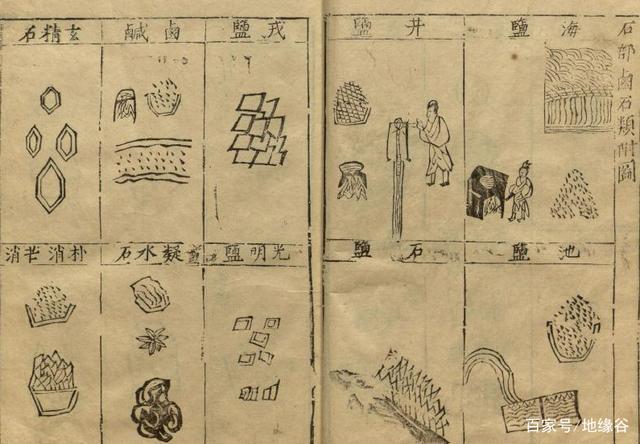 石部鹵石類附圖
海鹽
井鹽
戎鹽
鹵鹹
玄精石
池鹽
石鹽
光明鹽
凝水石
朴消芒消
百家号/地缘谷